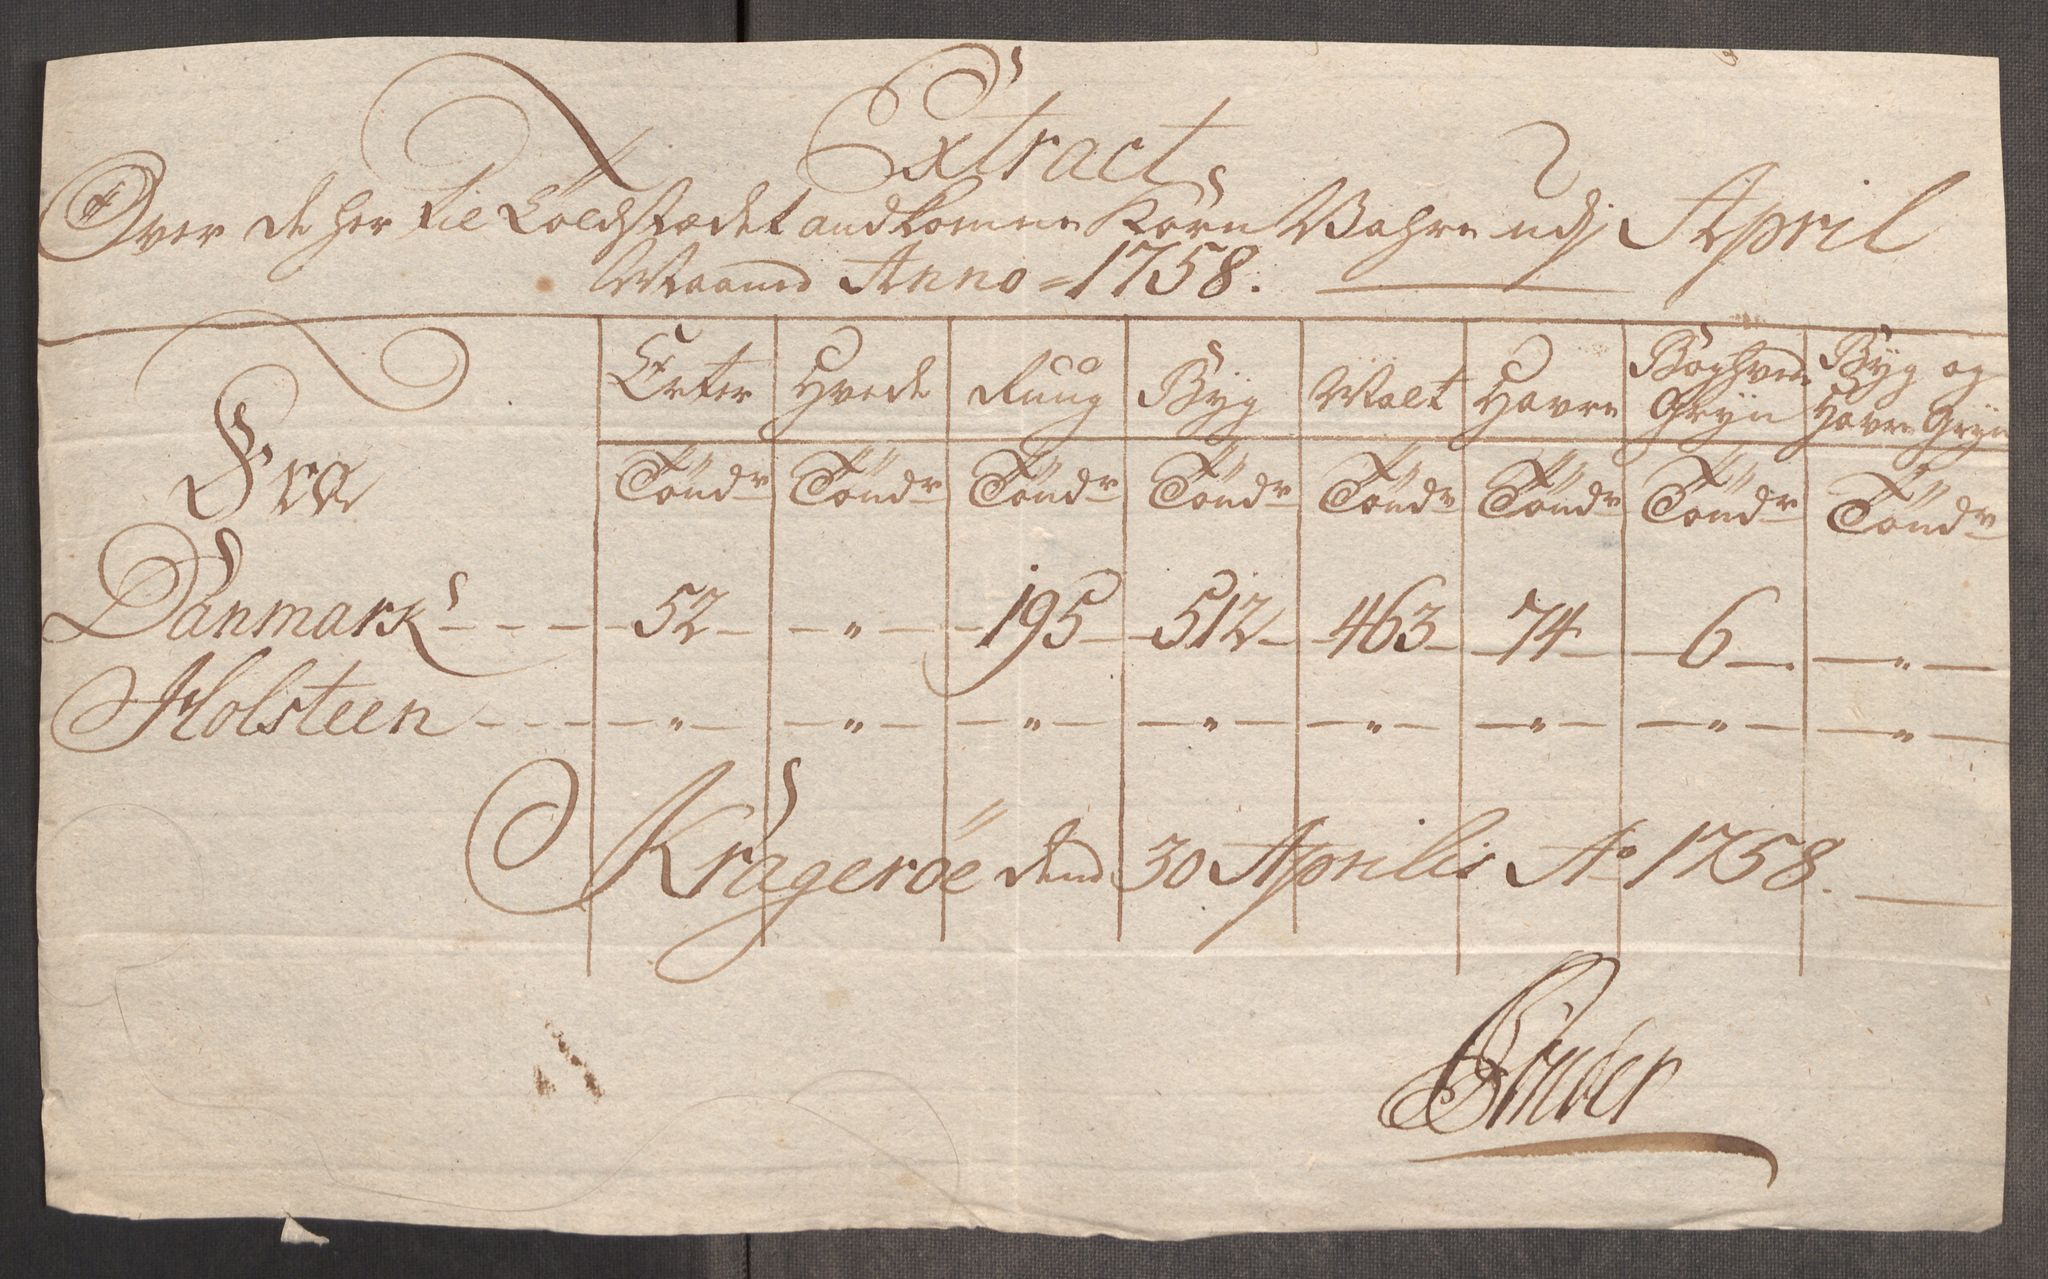 Extract
Over de her til Toldstædet andkomne Korn Vahre udj April
Maaned Anno 1758.
Fra Erter Hvede Ruug Byg Malt Havre Boghvede Gryn Byg og Havre Gryn
Töndr Töndr Töndr Töndr Töndr Töndr Töndr Töndr
Danmark - - - 52 - " - 195 - 512 - 463 - 74 - 6 - " -
Holsteen - - - " - " - " - " - " - " - " - " -
Krageröe dend 30 Aprilis Ao 1758.